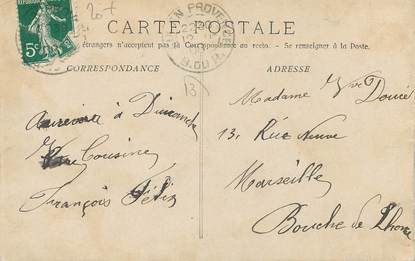 20f
5c
CARTE POSTALE
étrangers n'acceptent pas la Correspondance au recto. — Se renseigner à la Poste.
CORRESPONDANCE
ADRESSE
13
à Dimanche
Cousine
François Félix
Madame Vve
13, Rue Neuve
Marseille
Bouche de Rhone